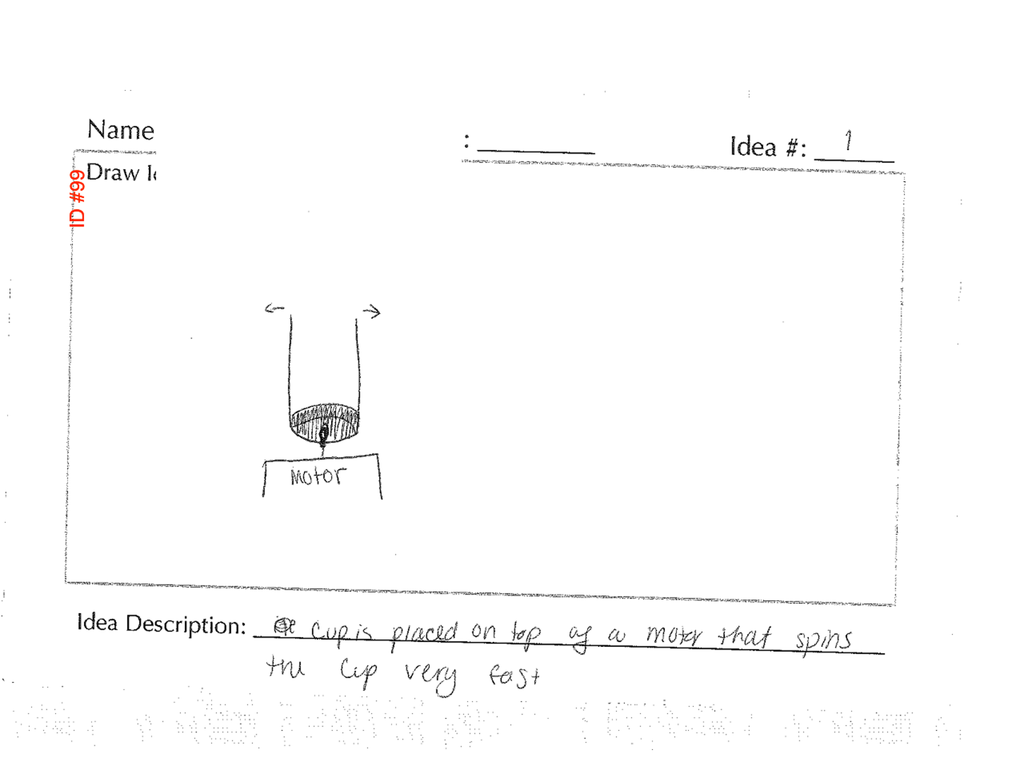 Name : Idea #: 1
Draw I
ID #99
Motor
Idea Description: Cup is placed on top of a motor that spins
the cup very fast